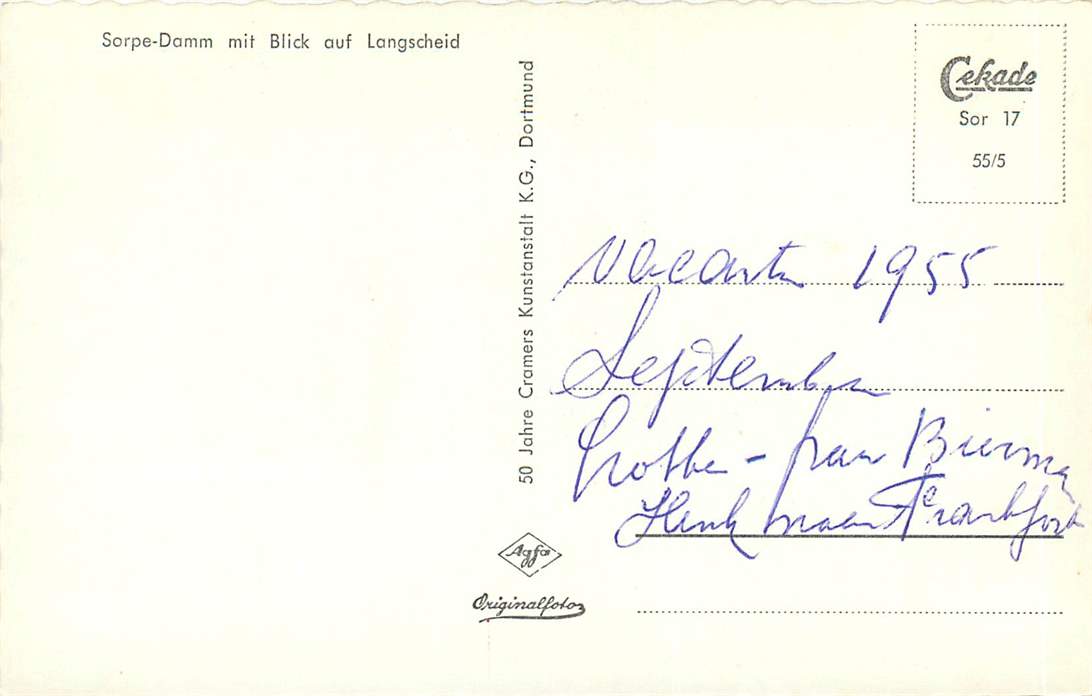 Sorpe-Damm mit Blick auf Langscheid
Cekade
Sor 17
55/5
50 Jahre Cramers Kunstanstalt K.G., Dortmund
1955
September
Henk naar Frankfort
Agfa
Originalfoto